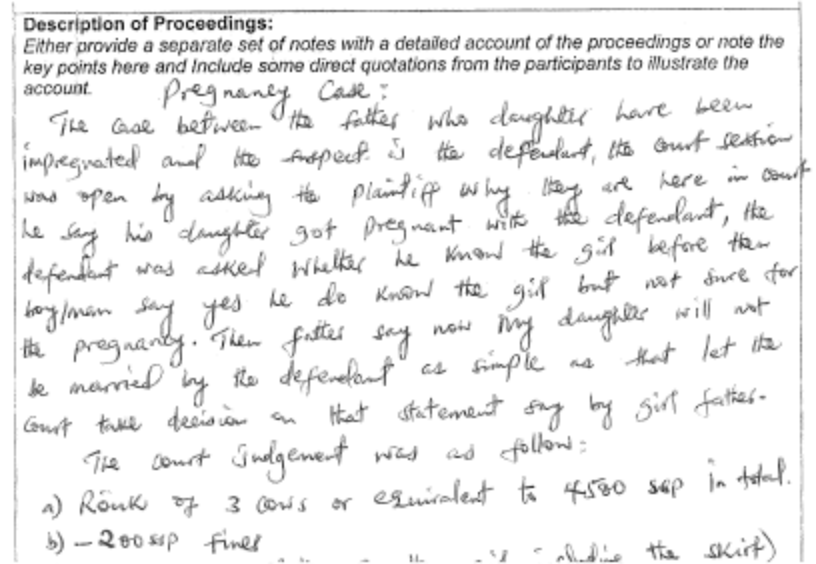 Description of Proceedings:
Either provide a separate set of notes with a detailed account of the proceedings or note the
key points here and Include some direct quotations from the participants to illustrate the
account. Pregnancy Case:
The case between the father who daughter have been
impregnated and the suspect is the defendant, the court session
was open by asking the Plaintiff why they are here in court
he say his daughter got pregnant with the defendant, the
defendant was asked whether he know the girl before then
boy/man say yes he do know the girl but not sure for
the pregnancy. Then father say now my daughter will not
be married by the defendant as simple as that let the
Court take decision on that statement say by girl father.
The court judgement was as follow:
a) Rouk of 3 cows or equivalent to 4,500 ssp in total.
b) - 200 ssp fines
the skirt)